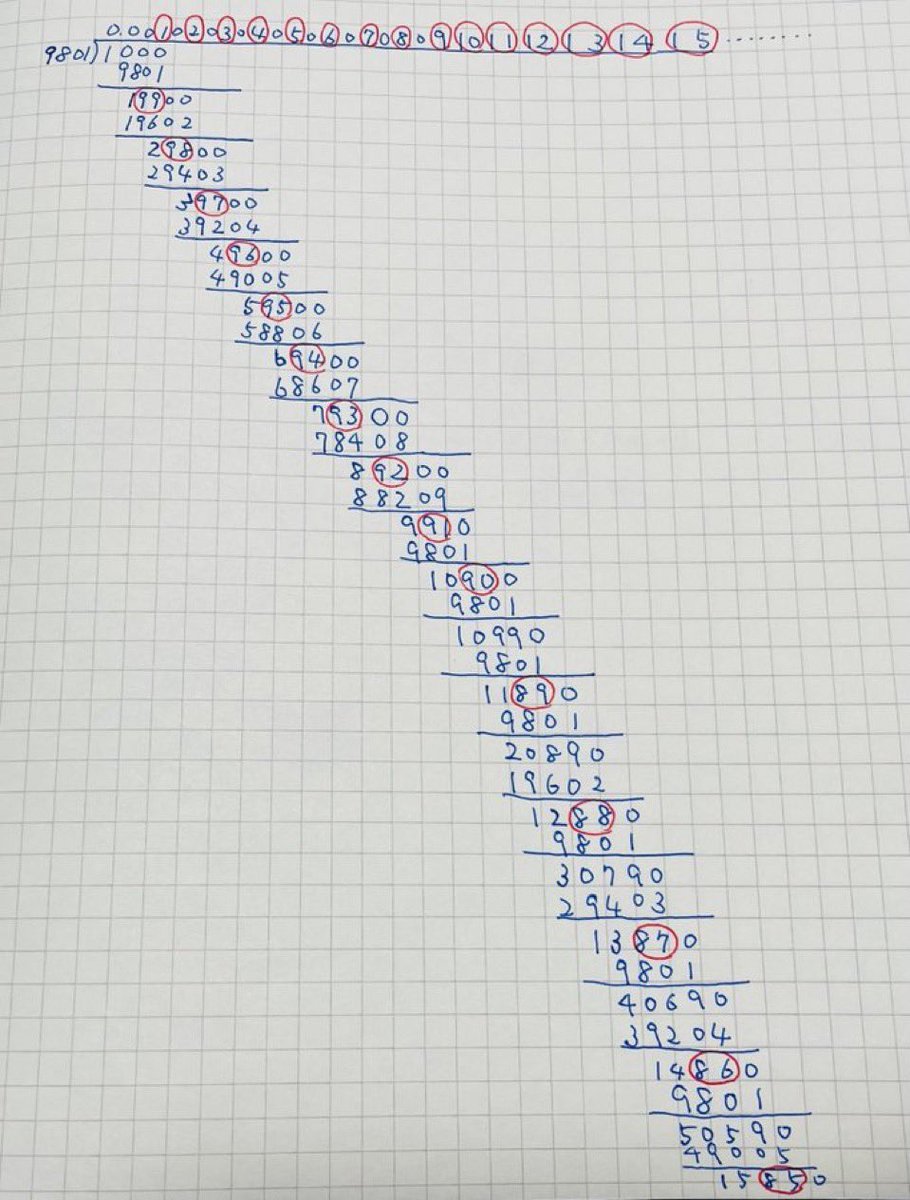 0.00102030405060708091011121314 15 ........
9801)1000
9801
19900
19602
29800
29403
39700
39204
49600
49005
59500
58806
69400
68607
79300
78408
89200
88209
9910
9801
10900
9801
10990
9801
11890
9801
20890
19602
12880
9801
30790
29403
13870
9801
40690
39204
14860
9801
50590
49005
15850